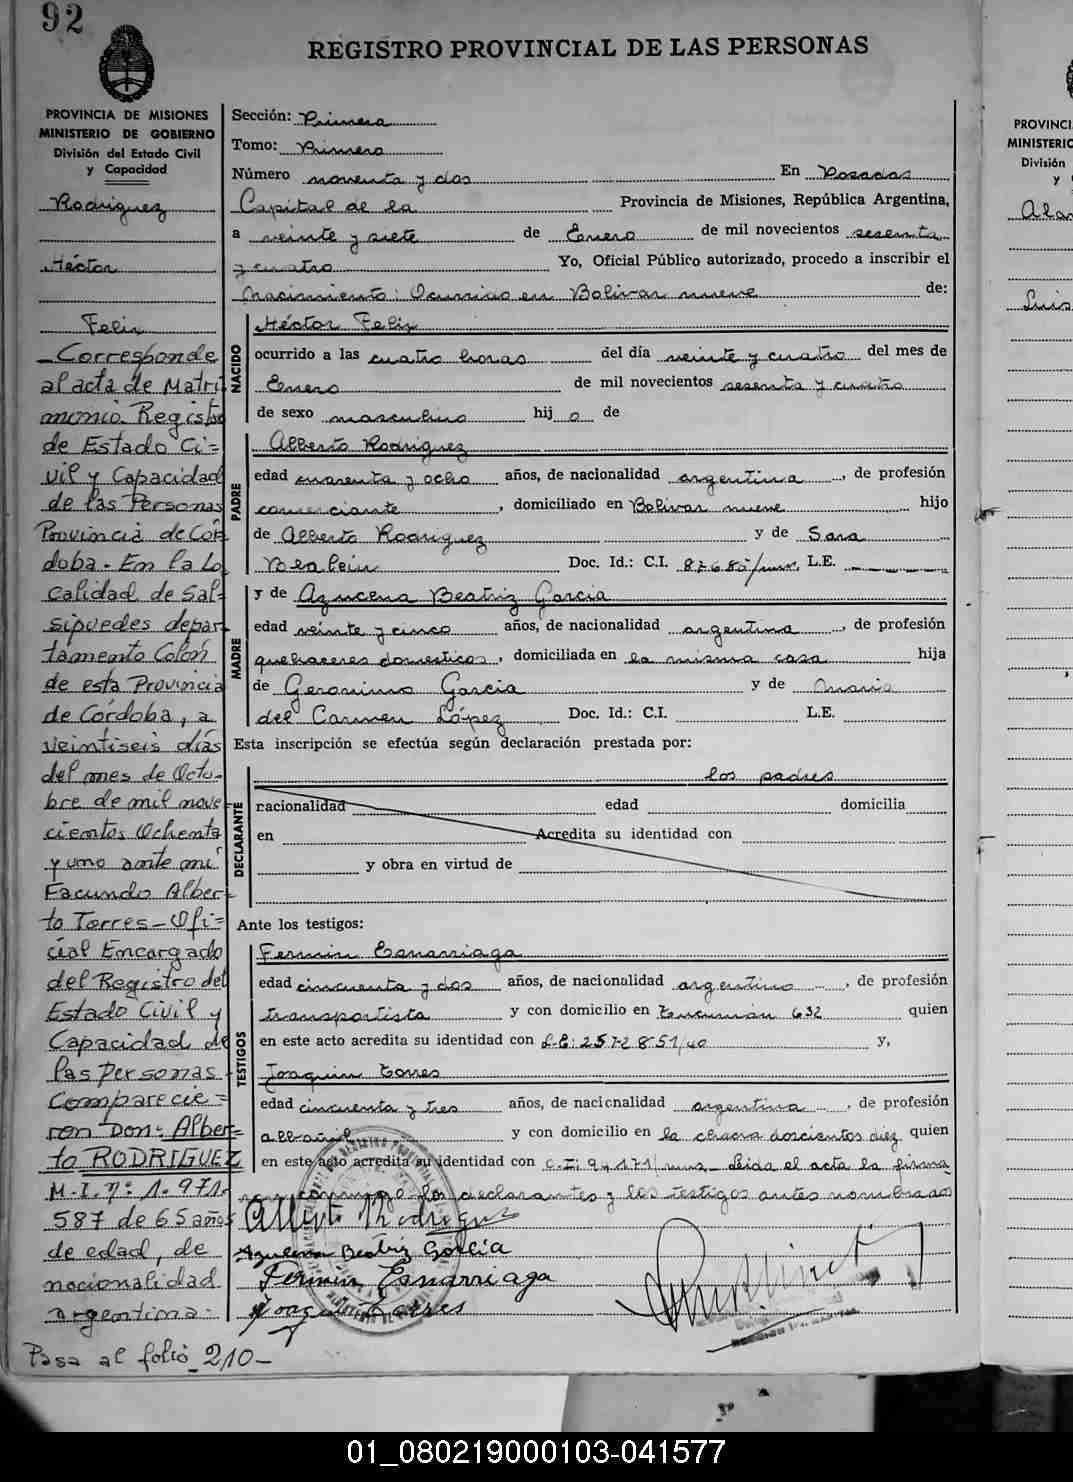 92
REGISTRO PROVINCIAL DE LAS PERSONAS
PROVINCIA DE MISIONES
MINISTERIO DE GOBIERNO
División del Estado Civil
y Capacidad
Rodriguez
Héctor
Felix
Corresponde
al acta de Matri
monio. Registro
de Estado Ci=
vil y Capacidad
de las Personas
Provincia de Cór
doba. En la Lo
calidad de Sal=
sipuedes depar
tamento Colón
de esta Provincia
de Córdoba, a
veintiseis días
del mes de Octu-
bre de mil nove
cientos Ochenta
y uno ante mi
Facundo Alber-
to Torres - Ofi=
cial Encargado
del Registro del
Estado Civil y
Capacidad de
las personas
Comparecie=
ron Don: Alber-
to RODRIGUEZ
M.I. Nº: 1.971.
587 de 65 años
de edad, de
nacionalidad
argentina.
Pasa al folio 210-
Sección: Primera
Tomo: Primero
Número noventa y dos En Posadas
Capital de la Provincia de Misiones, República Argentina,
a veinte y siete de Enero de mil novecientos sesenta
y cuatro Yo, Oficial Público autorizado, procedo a inscribir el
Nacimiento: Ocurrido en Bolivar nueve de:
NACIDO
Héctor Felix
ocurrido a las cuatro horas del día veinte y cuatro del mes de
Enero de mil novecientos sesenta y cuatro
de sexo masculino hij o de
PADRE
Alberto Rodriguez
edad cuarenta y ocho años, de nacionalidad argentina, de profesión
comerciante, domiciliado en Bolivar nueve hijo
de Alberto Rodriguez y de Sara
Doc. Id.: C.I. L.E.
MADRE
y de Azucena Beatriz Garcia
edad veinte y cinco años, de nacionalidad argentina, de profesión
quehaceres domesticos, domiciliada en la misma casa hija
de Geronimo Garcia y de Maria
del Carmen López Doc. Id.: C.I. L.E.
Esta inscripción se efectúa según declaración prestada por:
los padres
DECLARANTE
nacionalidad edad domicilia
en Acredita su identidad con
y obra en virtud de
Ante los testigos:
TESTIGOS
Fermin Esnarriaga
edad cincuenta y dos años, de nacionalidad argentino, de profesión
transportista y con domicilio en Tucuman 632 quien
en este acto acredita su identidad con L.E: y,
Joaquin Torres
edad cincuenta y tres años, de nacionalidad argentina, de profesión
albañil y con domicilio en la chacra doscientos diez quien
en este acto acredita su identidad con C.I: Leida el acta la firma
conmigo los declarantes y los testigos antes nombrados
Alberto Rodriguez
Azucena Beatriz Garcia
Fermin Esnarriaga
Joaquin Torres
PROVINCI
MINISTERIO
División
y
Luis
01_080219000103-041577